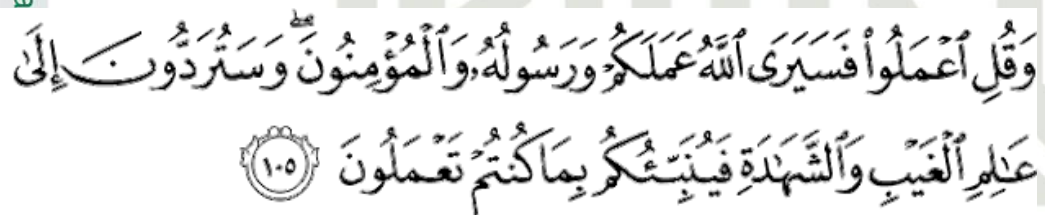 وَقُلِ ٱعْمَلُوا۟ فَسَيَرَى ٱللَّهُ عَمَلَكُمْ وَرَسُولُهُۥ وَٱلْمُؤْمِنُونَ ۖ وَسَتُرَدُّونَ إِلَىٰ
عَـٰلِمِ ٱلْغَيْبِ وَٱلشَّهَـٰدَةِ فَيُنَبِّئُكُم بِمَا كُنتُمْ تَعْمَلُونَ ١٠٥